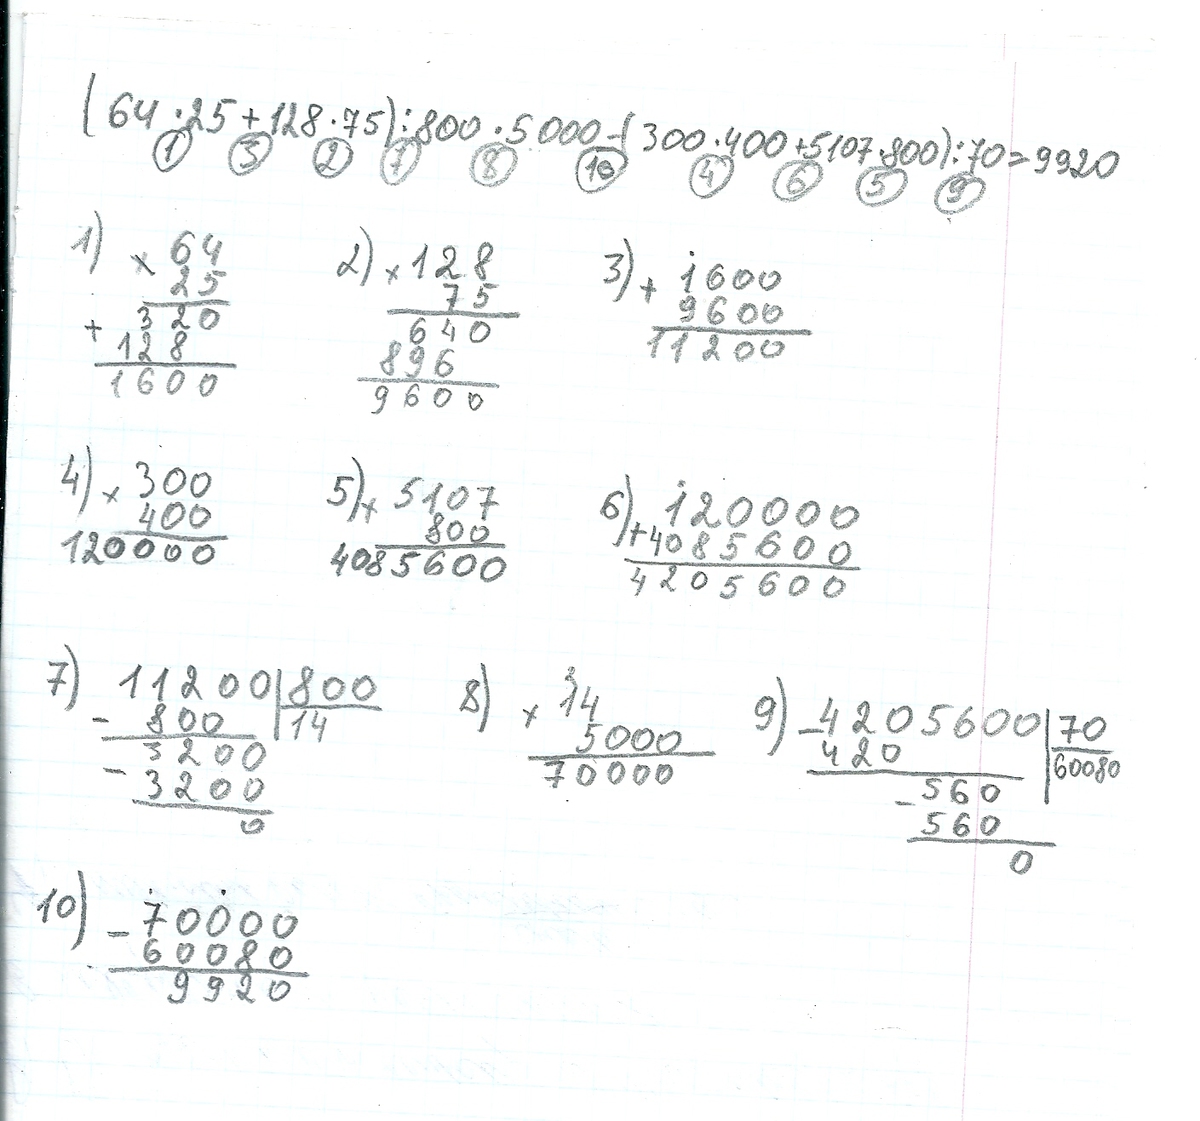 (64·25+128·75):800·5000-(300·400+5107·800):70=9920
1 3 2 7 8 10 4 6 5 9
1) × 64
25
320
+ 128
1600
2) × 128
75
640
896
9600
3) + 1600
9600
11200
4) × 300
400
120000
5) × 5107
800
4085600
6) + 120000
4085600
4205600
7) - 11200 | 800
800 | 14
3200
- 3200
0
8) × 14
5000
70000
9) - 4205600 | 70
420 | 60080
- 560
560
0
10) - 70000
60080
9920